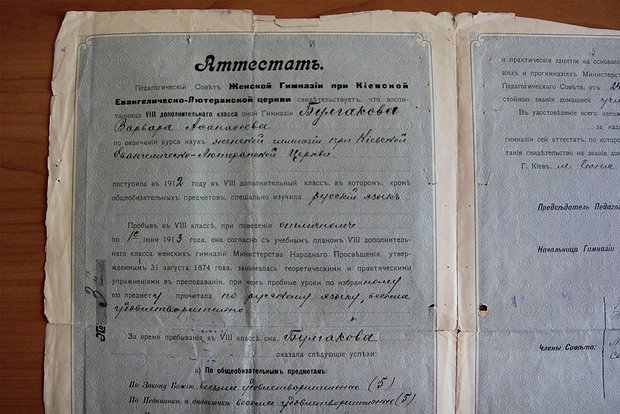 Аттестатъ.
Педагогическій Совѣтъ Женской Гимназіи при Кіевской
Евангелическо-Лютеранской церкви свидѣтельствуетъ, что воспи-
танница VIII дополнительнаго класса оной Гимназіи Булгакова
Варвара Афанасьевна
по окончаніи курса наукъ женской гимназіи при Кіевской
Евангелическо-Лютеранской Церкви
поступила въ 1912 году въ VIII дополнительный классъ, въ которомъ, кромѣ
общеобязательныхъ предметовъ, спеціально изучила русскій языкъ
Пробывъ въ VIII классѣ, при поведеніи отличномъ
по 1е іюня 1913 года, она согласно съ учебнымъ планомъ VIII дополнитель-
наго класса женскихъ гимназій Министерства Народнаго Просвѣщенія, утверж-
деннымъ 31 августа 1874 года, занималась теоретическими и практическими
упражненіями въ преподаваніи, при чемъ пробные уроки по избранному
ею предмету прочитала по русскому языку, весьма
удовлетворительно
№ 3
За время пребыванія въ VIII классѣ она, Булгакова
оказала слѣдующіе успѣхи:
а) По общеобязательнымъ предметамъ:
По Закону Божію весьма удовлетворительно (5)
По Педагогикѣ и дидактикѣ весьма удовлетворительно (5)
и практическія занятія на основа
зіяхъ и прогимназіяхъ Министерс
Педагогическаго Совѣта, отъ 24
стойною званія домашней учи
Въ удостовѣреніе всего изложе
за над
гимназіи сей аттестатъ, по котор
танія свидѣтельство на званіе до
Г. Кіевъ.
Предсѣдатель Педагог
Начальница Гимназіи
Члены Совѣта: